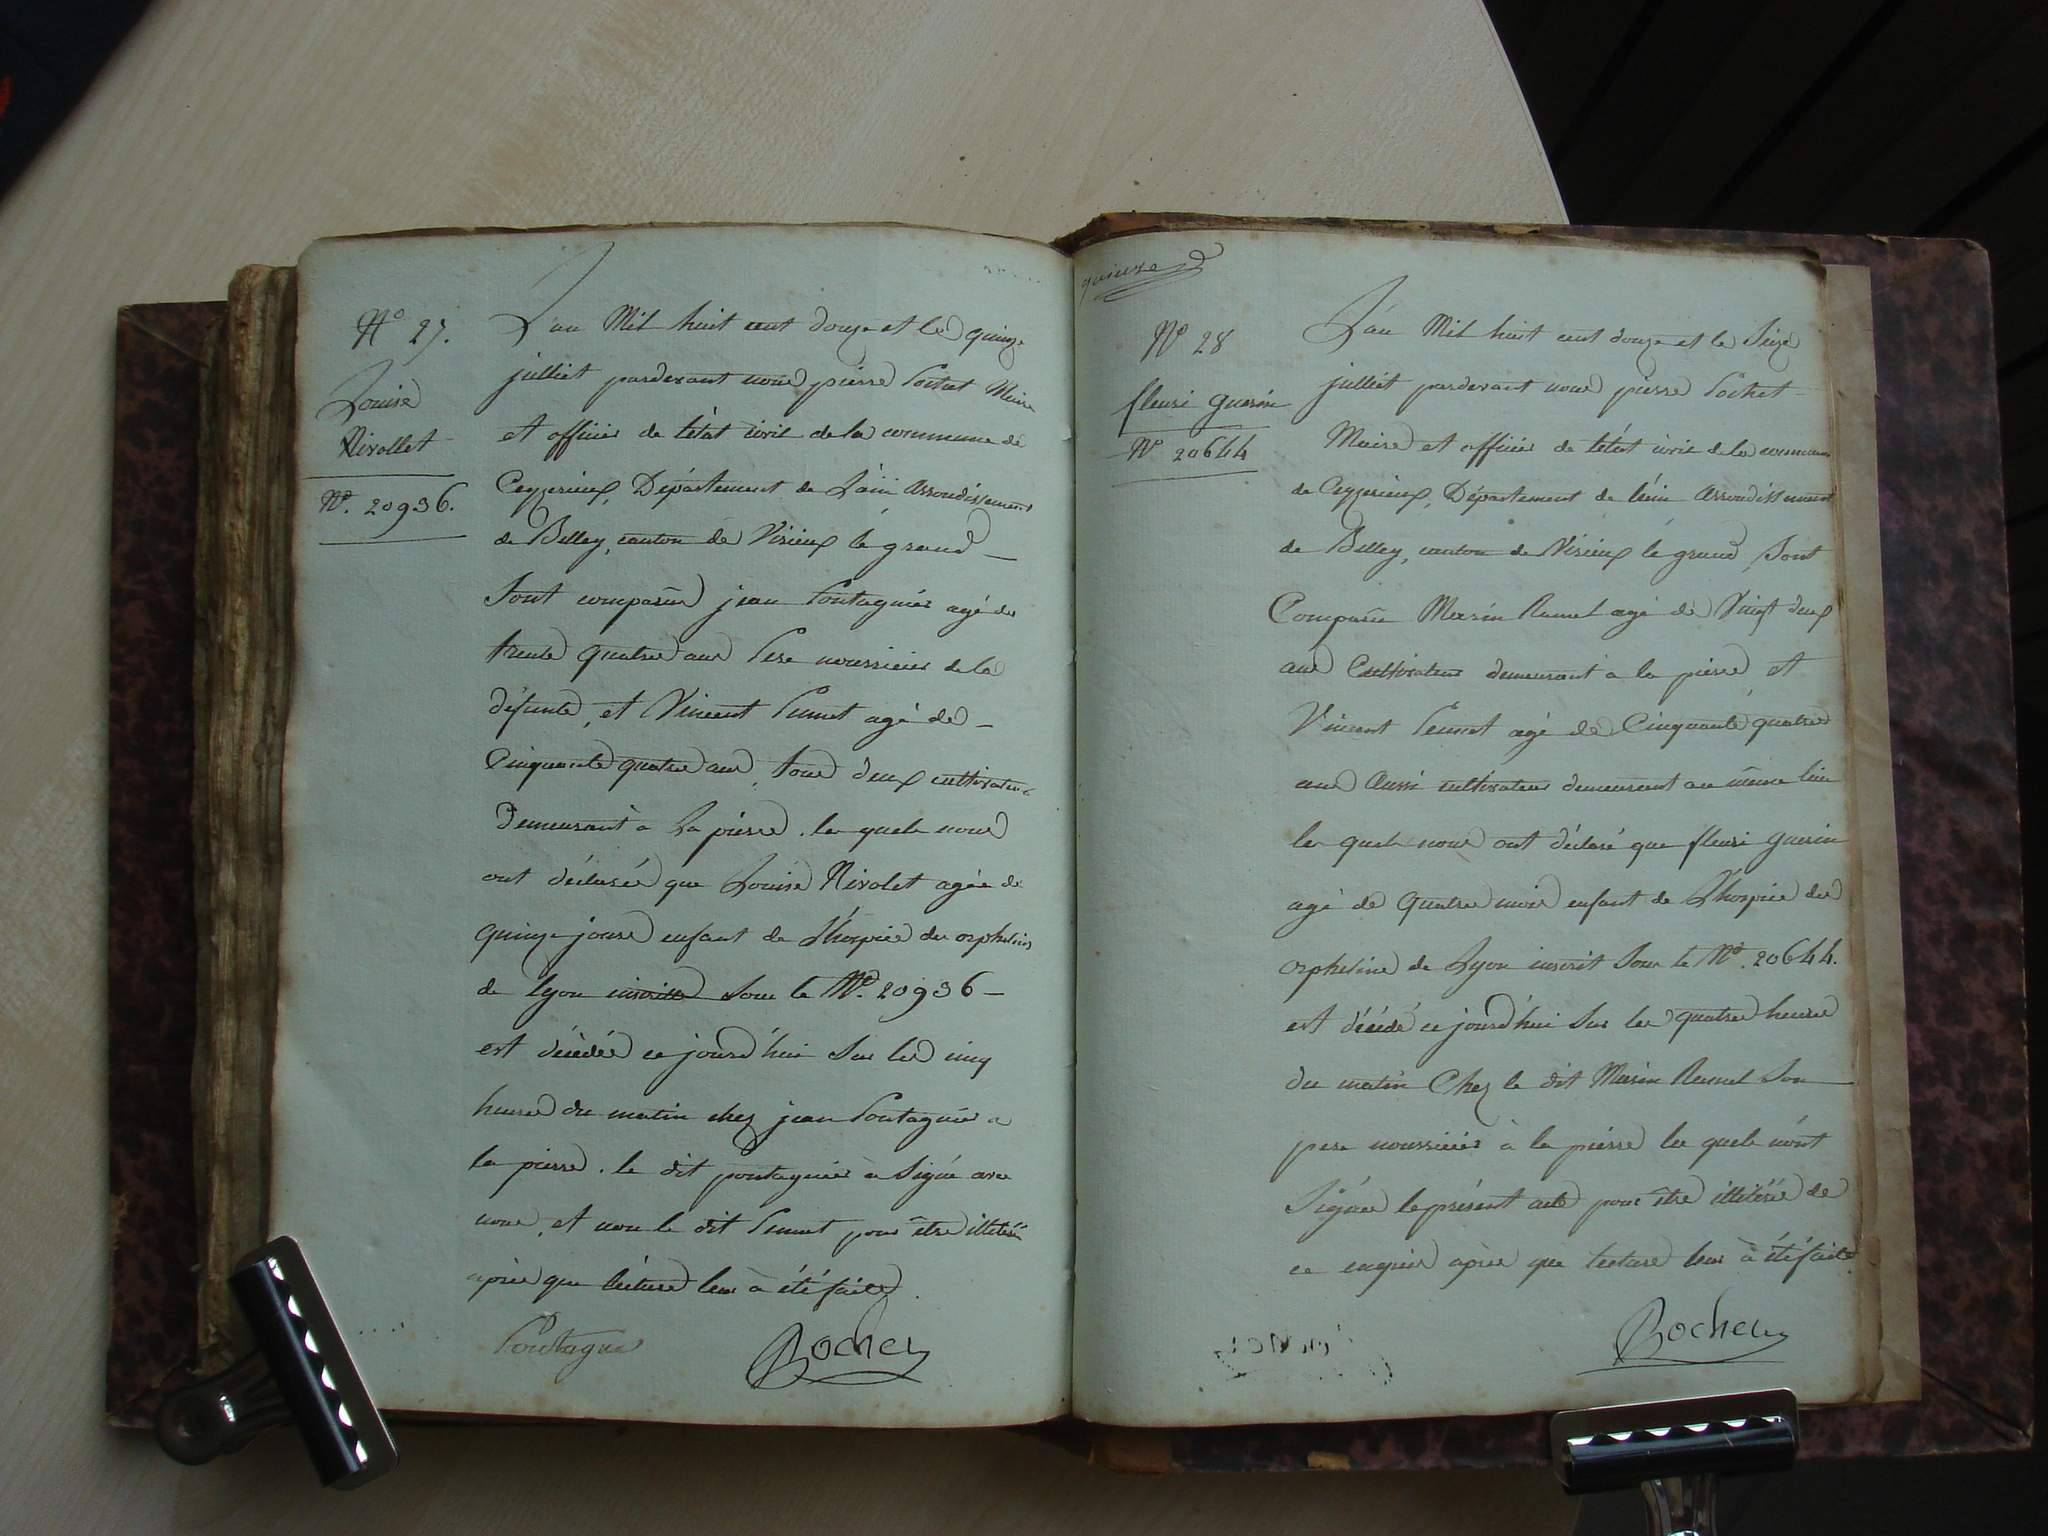 N° 27.
Louise
Nivollet
N°. 20936.
L'an Mil huit cent douze et le quinze
juilliet pardevant nous pierre Pochet Maire
et officier de l'état civil de la commune de
Ceyzerieux, Département de L'ain arrondissement
de Belley, canton de Virieux le grand
Sont comparu jean Pontagnier agé de
trente quatre ans Pere nourricier de la
défunte, et Vincent Peunet agé de
Cinquante quatre ans, tous deux cultivateurs
Demeurant à La pierre. les quels nous
ont déclarée que Louise Nivolet agée de
quinze jours enfant de L'hospice des orphelins
de lyon inscritte sous le N°. 20936
est décédée ce jourd'hui sur les cinq
heures du matin chez jean Pontagnier a
la pierre. le dit pontagnier à signé avec
nous, et non le dit Peunet pour être illitéré
après que lécture leur à été faite.
Pontagnie
Bochet
quinze
N° 28
fleuri guerin
N° 20644
L'an Mil huit cent douze et le Seize
juilliet pardevant nous pierre Pochet
Maire et officier de l'état civil de la commune
de Ceyzerieux, Département de l'ain arrondissement
de Belley, canton de Virieux le grand, Sont
Comparu Marin Ramel agé de Vingt deux
ans Cultivateur demeurant à la pierre et
Vincent Peunet agé de Cinquante quatre
ans Aussi cultivateur demeurant au même lieu
les quels nous ont déclaré que fleuri guerin
agé de quatre mois enfant de L'hospice des
orphelins de Lyon inscrit Sous le N°. 20644.
est décédé ce jourd'hui sur les quatre heures
du matin Chez le dit Marin Ramel Son
pere nourricier à la pierre les quels n'ont
Signée le présent acte pour être illitérée de
ce enquis après que lecture leur à été faite
Bochet